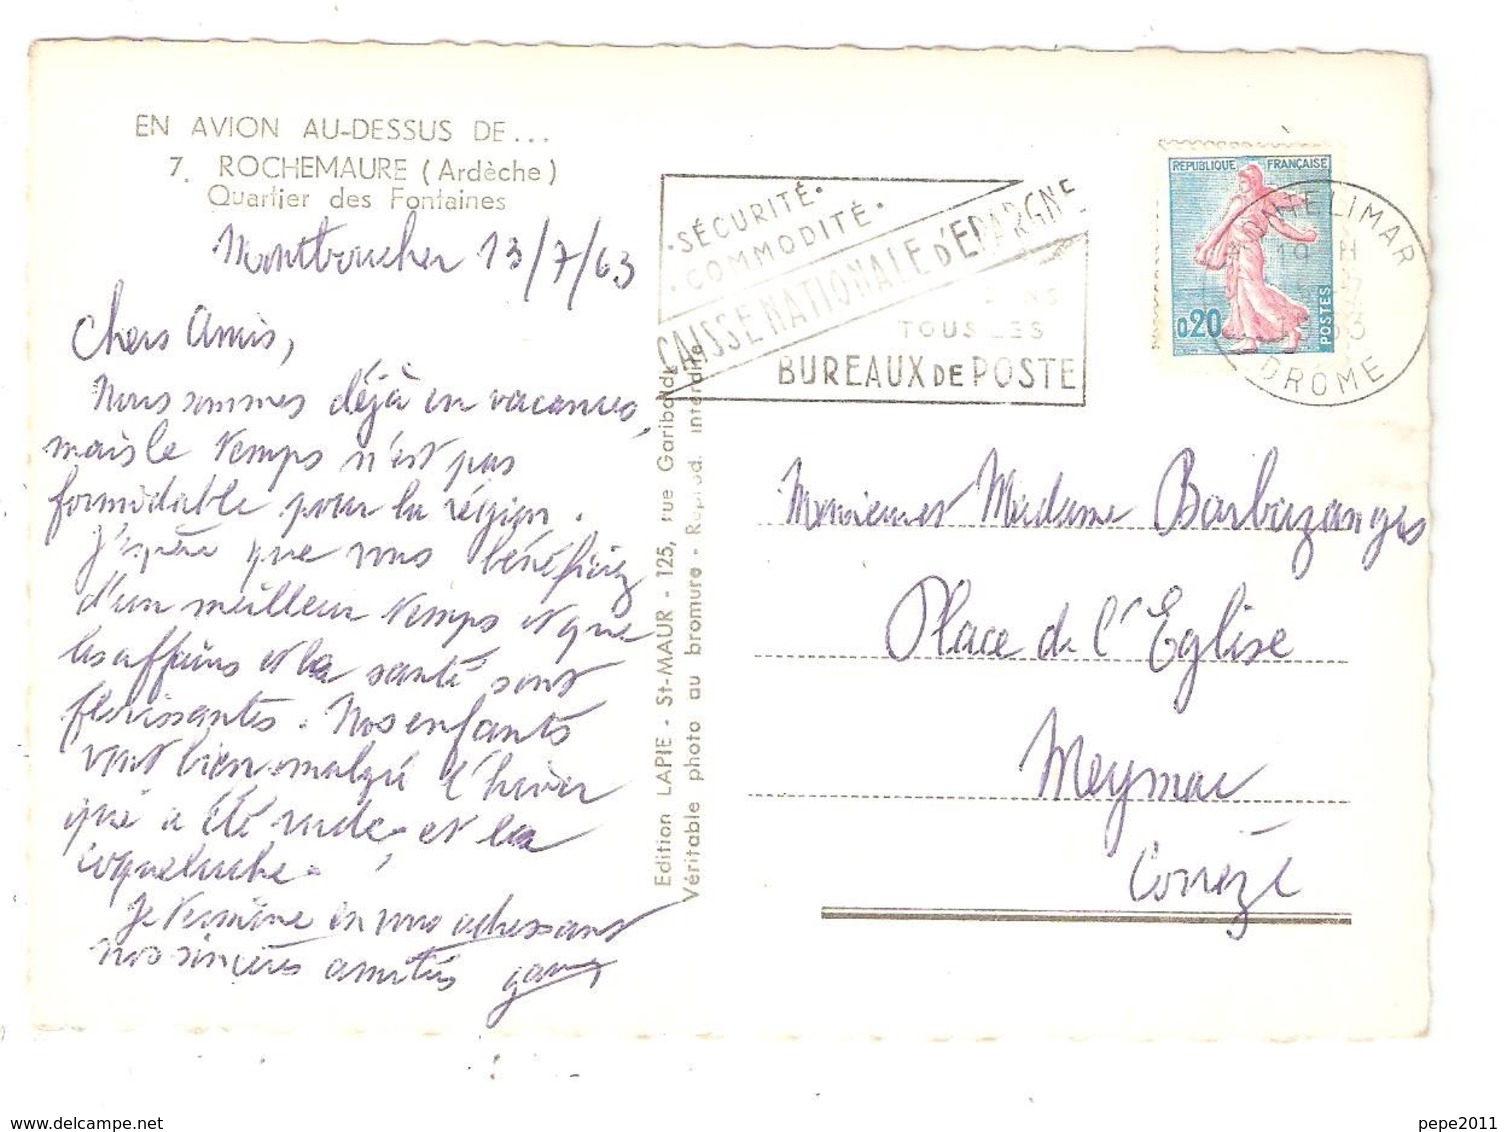 EN AVION AU-DESSUS DE...
7. ROCHEMAURE (Ardèche)
Quartier des Fontaines
Montboucher 13/7/63
Chers Amis,
Nous sommes déjà en vacances,
mais le temps n'est pas
formidable pour la région.
J'espère que vous bénéficiez
d'un meilleur temps et que
les affaires et la santé sont
florissantes. Nos enfants
vont bien malgré l'hiver
qui a été rude, et la
coqueluche.
Je termine en vous adressant
nos sincères amitiés
Edition LAPIE - St-MAUR - 125, rue Garibaldi
Véritable photo au bromure - Reprod. interdite
SÉCURITÉ.
COMMODITÉ.
CAISSE NATIONALE d'EPARGNE
DANS
TOUS LES
BUREAUX DE POSTE
REPUBLIQUE FRANÇAISE
0,20
POSTES
MONTELIMAR
19 H
1963
DROME
Monsieur et Madame Barbazanges
Place de l'Eglise
Meymac
Corrèze
delcampe.net
pepe2011